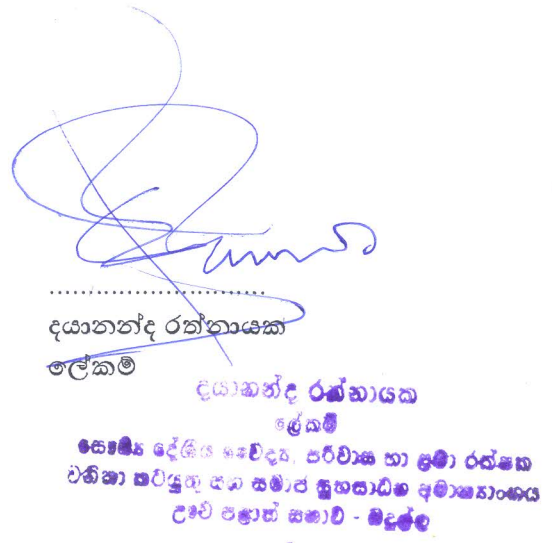 ..............................
දයානන්ද රත්නායක
ලේකම්
දයානන්ද රත්නායක
ලේකම්
සෞඛ්‍ය දේශීය වෛද්‍ය, පරිවාස හා ළමා රක්ෂක
වනිතා කටයුතු සහ සමාජ සුභසාධන අමාත්‍යාංශය
ඌව පළාත් සභාව - බදුල්ල